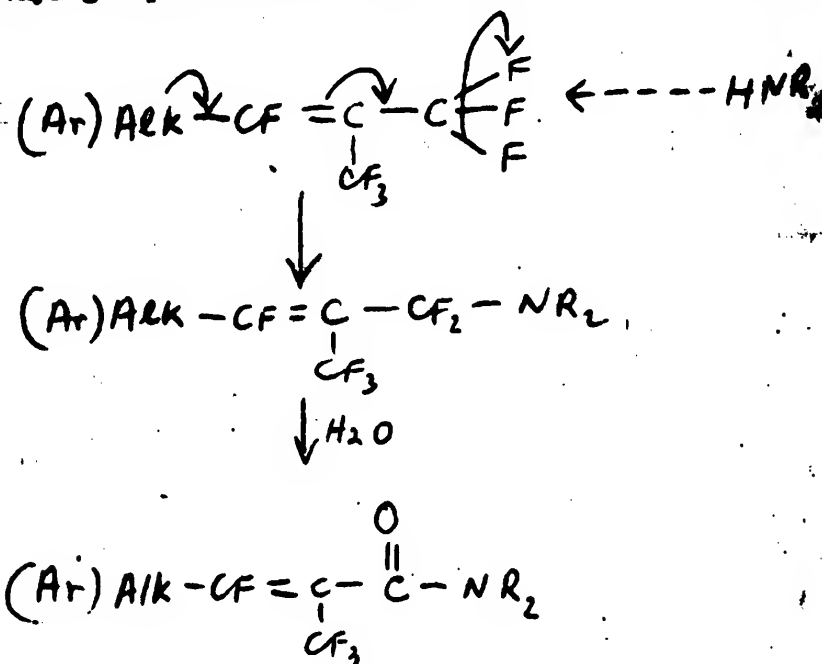 F
(Ar) Alk – CF = C – C – F ← - - - - HNR
CF3 F
(Ar) Alk – CF = C – CF2 – NR2
CF3
↓ H2O
O
(Ar) Alk – CF = C – C – NR2
CF3